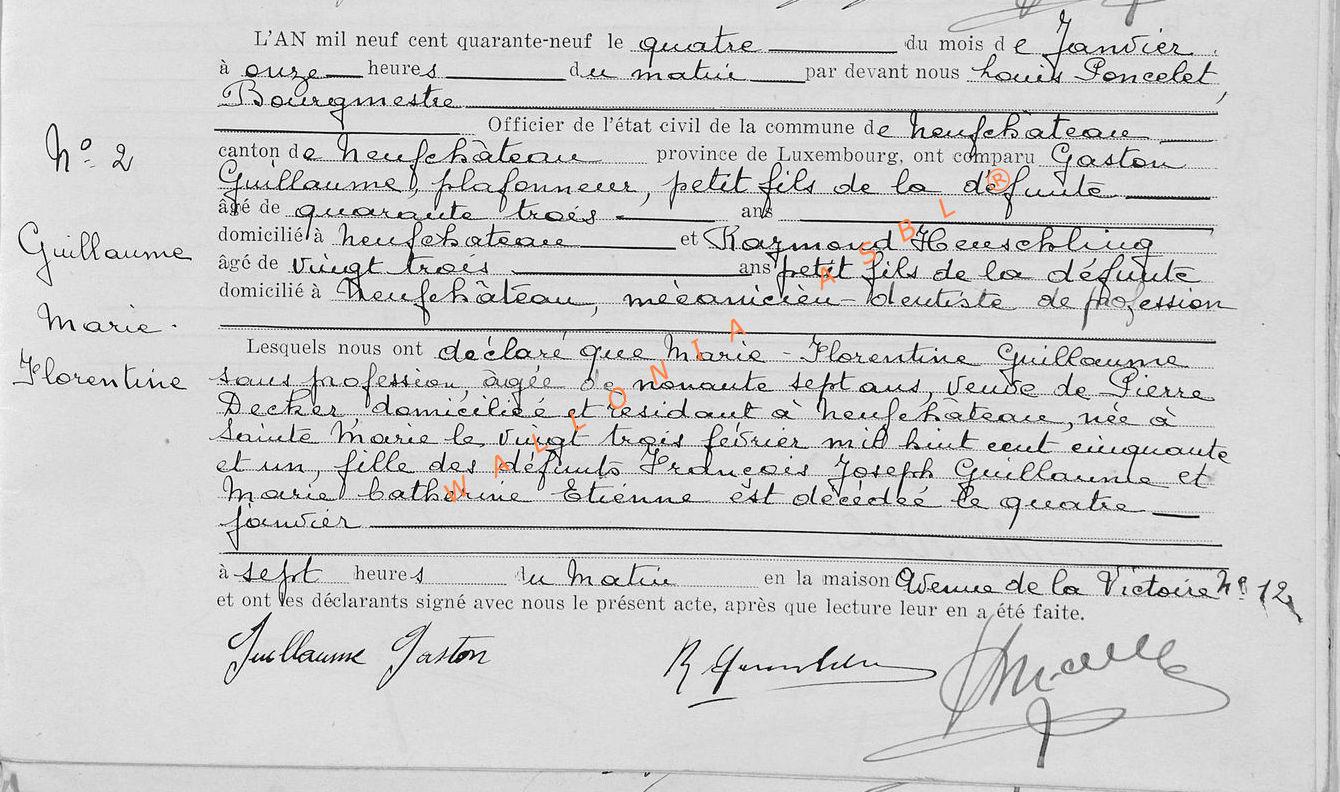 L'AN mil neuf cent quarante-neuf le quatre du mois de Janvier.
à onze heures du matin par devant nous Louis Poncelet,
Bourgmestre
Officier de l'état civil de la commune de Neufchâteau
canton de Neufchâteau province de Luxembourg, ont comparu Gaston
Guillaume, plafonneur, petit fils de la défunte
âgé de quarante trois ans
domicilié à Neufchâteau et Raymond Heuschling
âgé de vingt trois ans petit fils de la défunte
domicilié à Neufchâteau, mécanicien-dentiste de profession
Lesquels nous ont déclaré que Marie-Florentine Guillaume
sans profession, âgée de nonante sept ans, veuve de Pierre
Decker domiciliée et résidant à Neufchâteau, née à
Sainte Marie le vingt trois février mil huit cent cinquante
et un, fille des défunts François Joseph Guillaume et
Marie Catherine Etienne est décédée le quatre
janvier
à sept heures du Matin en la maison Avenue de la Victoire N° 12
et ont les déclarants signé avec nous le présent acte, après que lecture leur en a été faite.
N° 2
Guillaume
Marie.
Florentine
Guillaume Gaston
WALLONIA ASBL ®